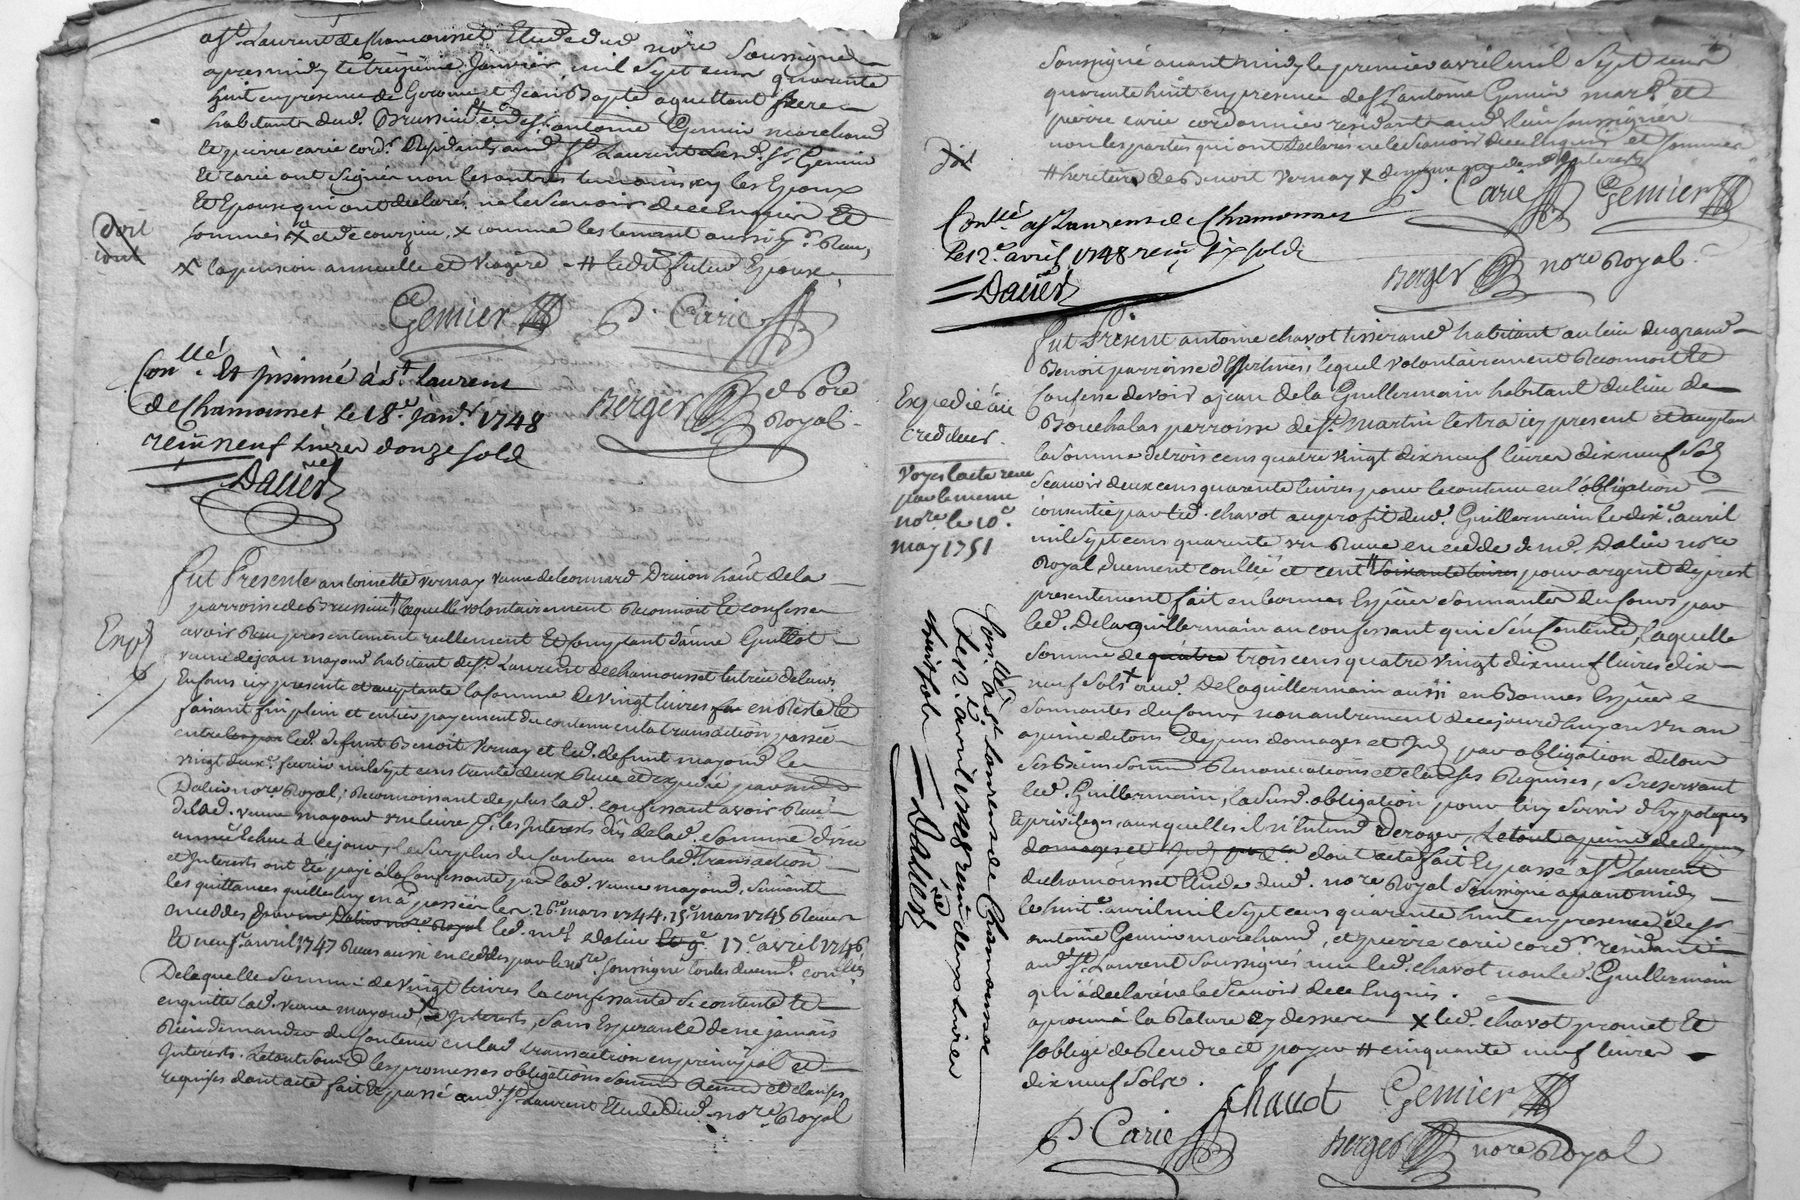 a St. Laurent de Chamousset Etude du d. nore Soussigné
apres midy le treizieme Janvier mil sept cens quarante
huit en presence de Gerome et Jean Bapte aquettant frere
habitants dud. Brussieu et de Sr. antoine Gemier marchand
et pierre carie cord. Residants aud. St. Laurent Lesd. Srs. Gemier
et carie ont signé non les autres temoins ny les Epoux
et Epouse qui ont declaré ne le scavoir de ce Enquis Et
sommés
doit
X la pension annuelle et viagere # ledit futur Epoux
Gemier P. Carie
Conllé. Et insinué à St. Laurent
de Chamousset le 18e. janv. 1748
reçu neuf livres douze sols
Dalier
Berger nore Royal
Fut Presente antoinette vernay veuve de leonnard Drivon haût de la
parroisse de Brussieu, laquelle volontairement Reconnoit et confesse
avoir Receu presentement reellement Et Comptant d'anne Guillot
veuve de jean mayoud habitant de St. Laurent de chamousset tutrice de leurs
Enfans icy presente et acceptante la somme de vingt livres en Reste et
faisant fin plein et entier payement du contenu en la transaction passée
entre led. defunt Benoit vernay et led. defunt mayoud le
vingt deux. fevrier mil sept cens trente deux Receue et expediée par
Dalier nore Royal; Reconnoissant de plus lad. confessant avoir Receu
de lad. veuve mayoud un livre pr. les Interests dûs de lad. somme d'une
année Echue à ce jour, le surplus du contenu en lad. transaction
et Interests ont été payé à la Confessante par lad. veuve mayoud, suivant
les quittances qu'elle luy en a passées les 26e. mars 1744. 15e. mars 1745 Receues
en cedes par Dalier nore Royal led. me. Dalier et 9e. 17e. avril 1746
Et neuf. avril 1747 Receus aussi en cedes par le nore. soussigné toutes duemt. conllés
De laquelle somme de vingt livres la confessante se contente et
en quitte lad. veuve mayoud, et Interests, sans Esperance de ne jamais
Rien demander du contenu en lad. transaction en principal et
Interests. Le tout sous les promesses obligations soumi Renon et clauses
requises dont acte fait Et passé aud. St. Laurent Etude dud. nore Royal
Expd
Soussigné avant midy le premier avril mil sept cens
quarante huit en presence de Sr. antoine Gemier march. et
pierre carie cordonnier residants aud. lieu soussignés
non les parties qui ont declaré ne le scavoir de ce Enquis et sommés
# heritiere de Benoit vernay
P. Carie Gemier
Conllé. a St. Laurent de Chamousset
Le 12e. avril 1748 reçu six sols
Dalier
Berger nore Royal.
Fut Present antoine chavot tisserand habitant au lieu du grand
Benoit parroisse d', lequel volontairement Reconnoit Et
Confesse devoir a jean de la Guillermain habitant du lieu de
Bouchalas parroisse de St. martin lestra icy present et acceptant
la somme de trois cens quatre vingt dix neuf livres dix neuf sols
Scavoir deux cens quarante livres pour le contenu en l'obligation
consentie par led. chavot au profit dud. Guillermain le dix. avril
mil sept cens quarante un Receue en cedde de me. Dalier nore
Royal duement conllée et cent # soixante livres pour argent de prest
presentement fait en bonnes Especes sonnantes du Cours par
led. De la guillermain au confessant qui s'en Contente, laquelle
somme de quatre trois cens quatre vingt dix neuf livres dix
neuf sols X aud. De la guillermain aussi en Bonnes Especes
sonnantes du Cours non autrement de ce jourd'huy en un an
a peine de tous Depens domages et Int. par obligation de tous
ses Biens soum Renonciations et clauses Requises, se reservant
led. Guillermain, la susd. obligation pour luy servir d'hypoteques
et privileges, auxquelles il n'Entend Deroger, Le tout a peine de depens
domages et Int. dont acte fait Et passé a St. Laurent
de chamousset Etude dud. nore Royal soussigné avant midy
le huit. avril mil sept cens quarante huit en presence de Sr.
antoine Gemier marchand, et pierre carie cord. residants
aud. St. Laurent soussignés avec led. chavot non led. Guillermain
qui a declaré ne le Scavoir de ce Enquis.
aprouvé la Rature cy dessus X led. chavot promet Et
s'oblige de Rendre et payer # cinquante neuf livres
dix neuf sols.
chavot Gemier
P. Carie Berger nore Royal
Expedié au
crediteur.
voyes l'acte receu
par le meme
nore le 10e.
may 1751
Conllé. a St. Laurent de Chamousset
Le 12e. avril 1748 reçu deux livres
huit sols
Dalier